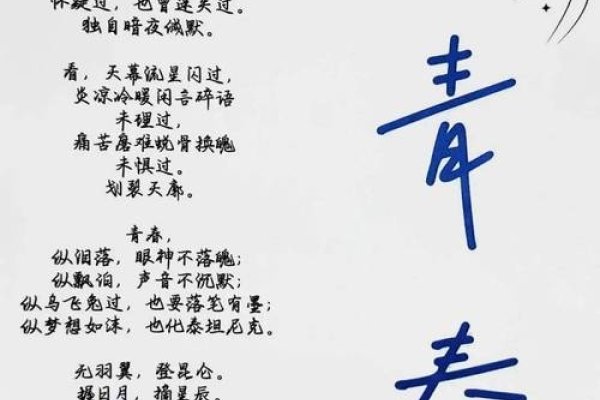 怀疑过，也曾迷失过。
独自暗夜缄默。
看，天幕流星闪过，
炎凉冷暖闲言碎语
未理过，
痛苦磨难蜕骨换魄
未惧过。
划裂天廓。
青春，
纵泪落，眼神不落魄；
纵飘泊，声音不沉默；
纵乌飞兔过，也要落笔有墨；
纵梦想如沫，也化泰坦尼克。
无羽翼，登昆仑。
握日月，摘星辰。
青
春